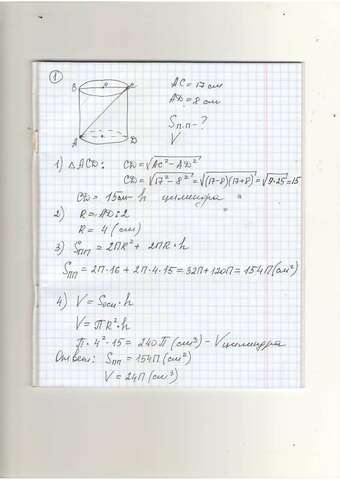 1
B C
A D
AC = 17 см
AD = 8 см
Sп.п - ?
V
1) △ACD: CD = √AC² - AD²
CD = √17² - 8² = √(17-8)(17+8) = √9·25 = 15
CD = 15 см - h цилиндра
2) R = AD : 2
R = 4 (см)
3) Sпп = 2ПR² + 2ПR·h
Sпп = 2П·16 + 2П·4·15 = 32П + 120П = 154П (см²)
4) V = Sосн · h
V = ПR²·h
П·4²·15 = 240П (см³) - V цилиндра
Ответ: Sпп = 154П (см²)
V = 24П (см³)